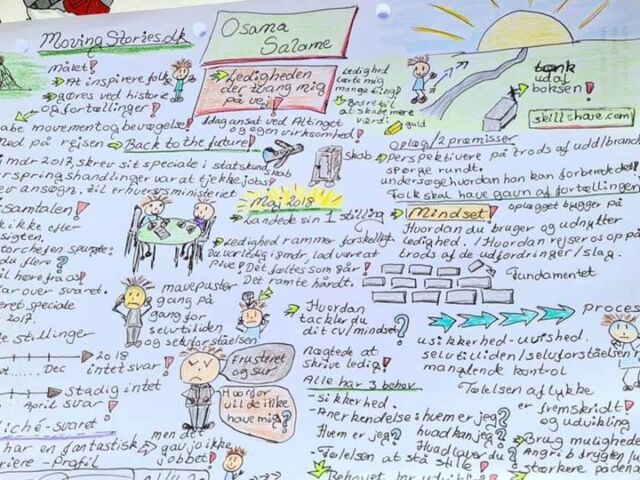 MovingStories.dk
målet!
At inspirere folk
gøres ved historie
og fortællinger!
abe movement og bevægelse!
med på rejsen
Back to the future!
mdr 2017, skrev sit speciale i statskundskab
erspringshandlinger var at tjekke jobs?
ev ansøgn. til erhvervsministeriet
Samtalen!
ik ikke efter
Osama
Salame
Ledigheden
der tvang mig
på vej!
Idag ansat ved Altinget
og egen virksomhed!
Ledighed
lærte mig
mange ting!
Bedre til
at skabe mere
værdi!
guld
skab
Maj 2018
Landede sin 1 stilling
Ledighed rammer forskelligt
Du Det føltes som 9 år!
Det ramte hårdt.
mavepuster
gang på
gang for
selvtilliden
og selvforståelsen
du flere?
il høre fra os!
ar over svaret.
eret speciale
2017.
e stillinger
2018
Dec
intet svar!
Stadig intet
April svar!
liché-svaret
har en fantastisk
riere-Profil
men det
gav jo ikke
jobbet!
Frustreret
og sur
Hvorfor
vil de ikke
have mig?
Hvordan
tackler du
dit cv/mindset?
Nægtede at
skrive ledig!
Alle har 3 behov
-sikkerhed.
-Anerkendelse: hvem er jeg?
Hvem er jeg? hvad kan jeg?
Hvad laver du?
-Følelsen af at stå stille!
Behovet for udvikling
tænk
ud af
boksen!
skillshare.com
oplæg/2 præmisser
Perspektivere på trods af udd/branch
spørge rundt.
undersøge hvordan han kan forberede det?
Folk skal have gavn af fortællingen
Mindset!
oplægget bygger på
Hvordan du bruger og udnytter
ledighed. / Hvordan rejser os op på
trods af de udfordringer/slag.
Fundamentet
Proce
usikkerhed-uvished.
selvtilliden/selvforståelsen
manglende kontrol
Følelsen af lykke
er fremskridt!
og udvikling
Brug mulighede
Angrib frygten
stærkere på den a